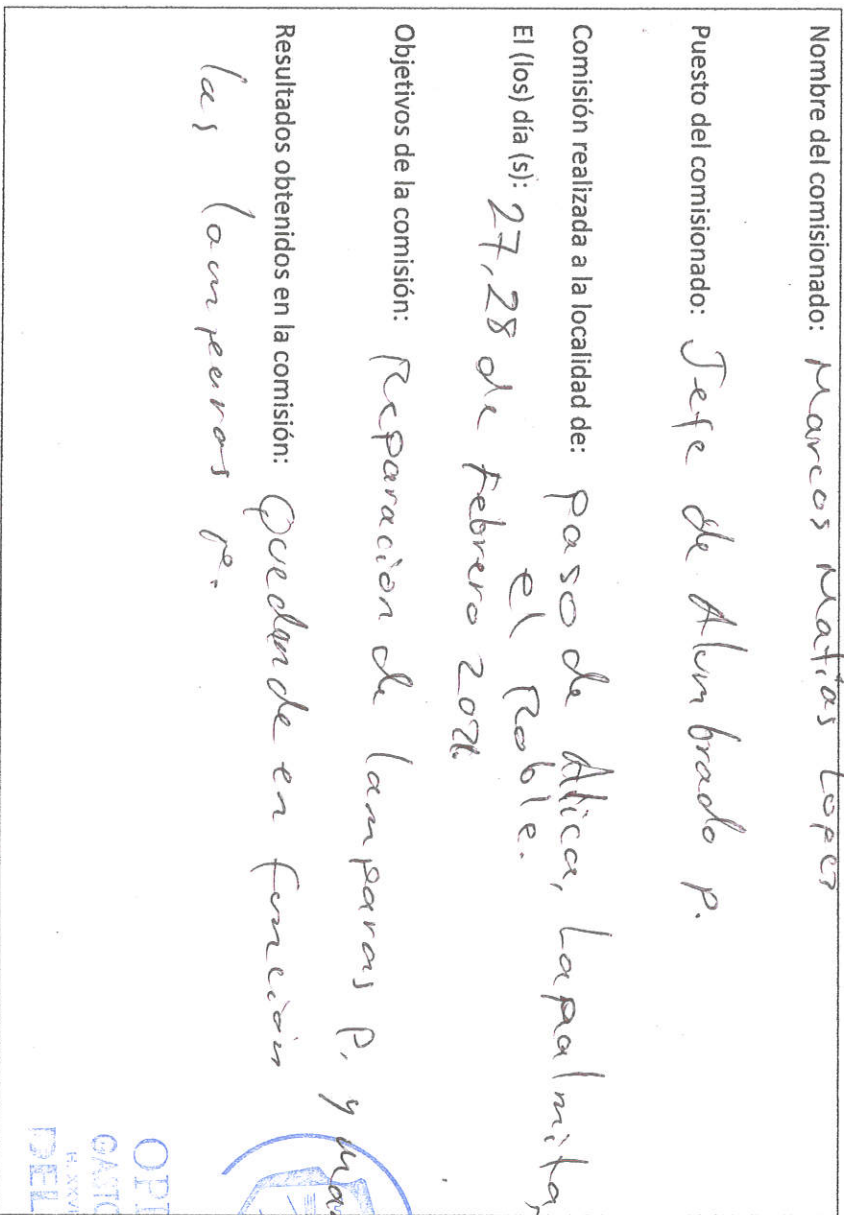 Nombre del comisionado: Marcos Matías Lopez
Puesto del comisionado: Jefe de Alumbrado P.
Comisión realizada a la localidad de: Paso de Alica, Lapalmita,
el Roble.
El (los) día (s): 27, 28 de Febrero
Objetivos de la comisión: Reparación de lamparas P. y
Resultados obtenidos en la comisión: Quedande en función
las lamparas P.
OPE
GASTO
H. XXVI
DEL